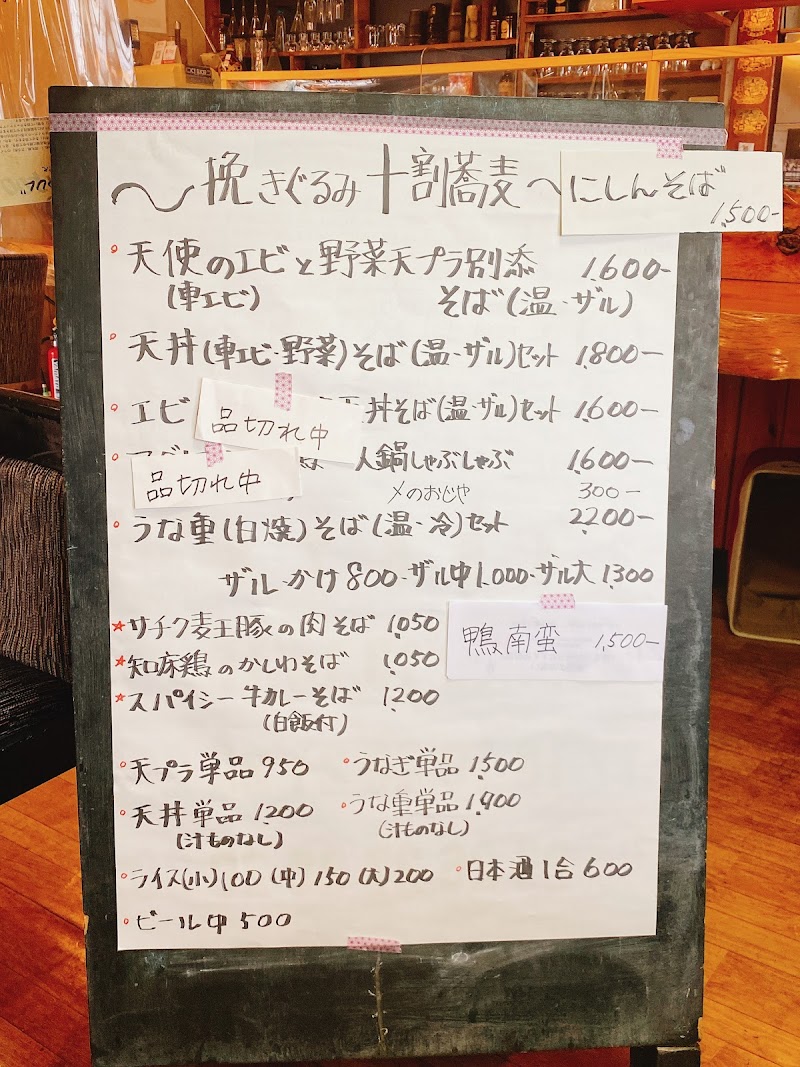 ～挽きぐるみ十割蕎麦～
にしんそば
1,500-
天使のエビと野菜天プラ別添 1,600-
(車エビ) そば(温・ザル)
天丼(車エビ・野菜)そば(温・ザル)セット 1,800-
エビ 丼そば(温・ザル)セット 1,600-
品切れ中
人鍋しゃぶしゃぶ 1,600-
品切れ中
〆のおじや 300-
うな重(白焼)そば(温・冷)セット 2,200-
ザル・かけ800・ザル中1,000・ザル大1,300
★サチク麦王豚の肉そば 1,050
★知床鶏のかしわそば 1,050
★スパイシー牛カレーそば 1,200
(白飯付)
鴨南蛮 1,500-
天プラ単品 950
うなぎ単品 1,500
天丼単品 1,200
(汁ものなし)
うな重単品 1,900
(汁ものなし)
ライス(小)100 (中)150 (大)200
日本酒1合 600
ビール中 500